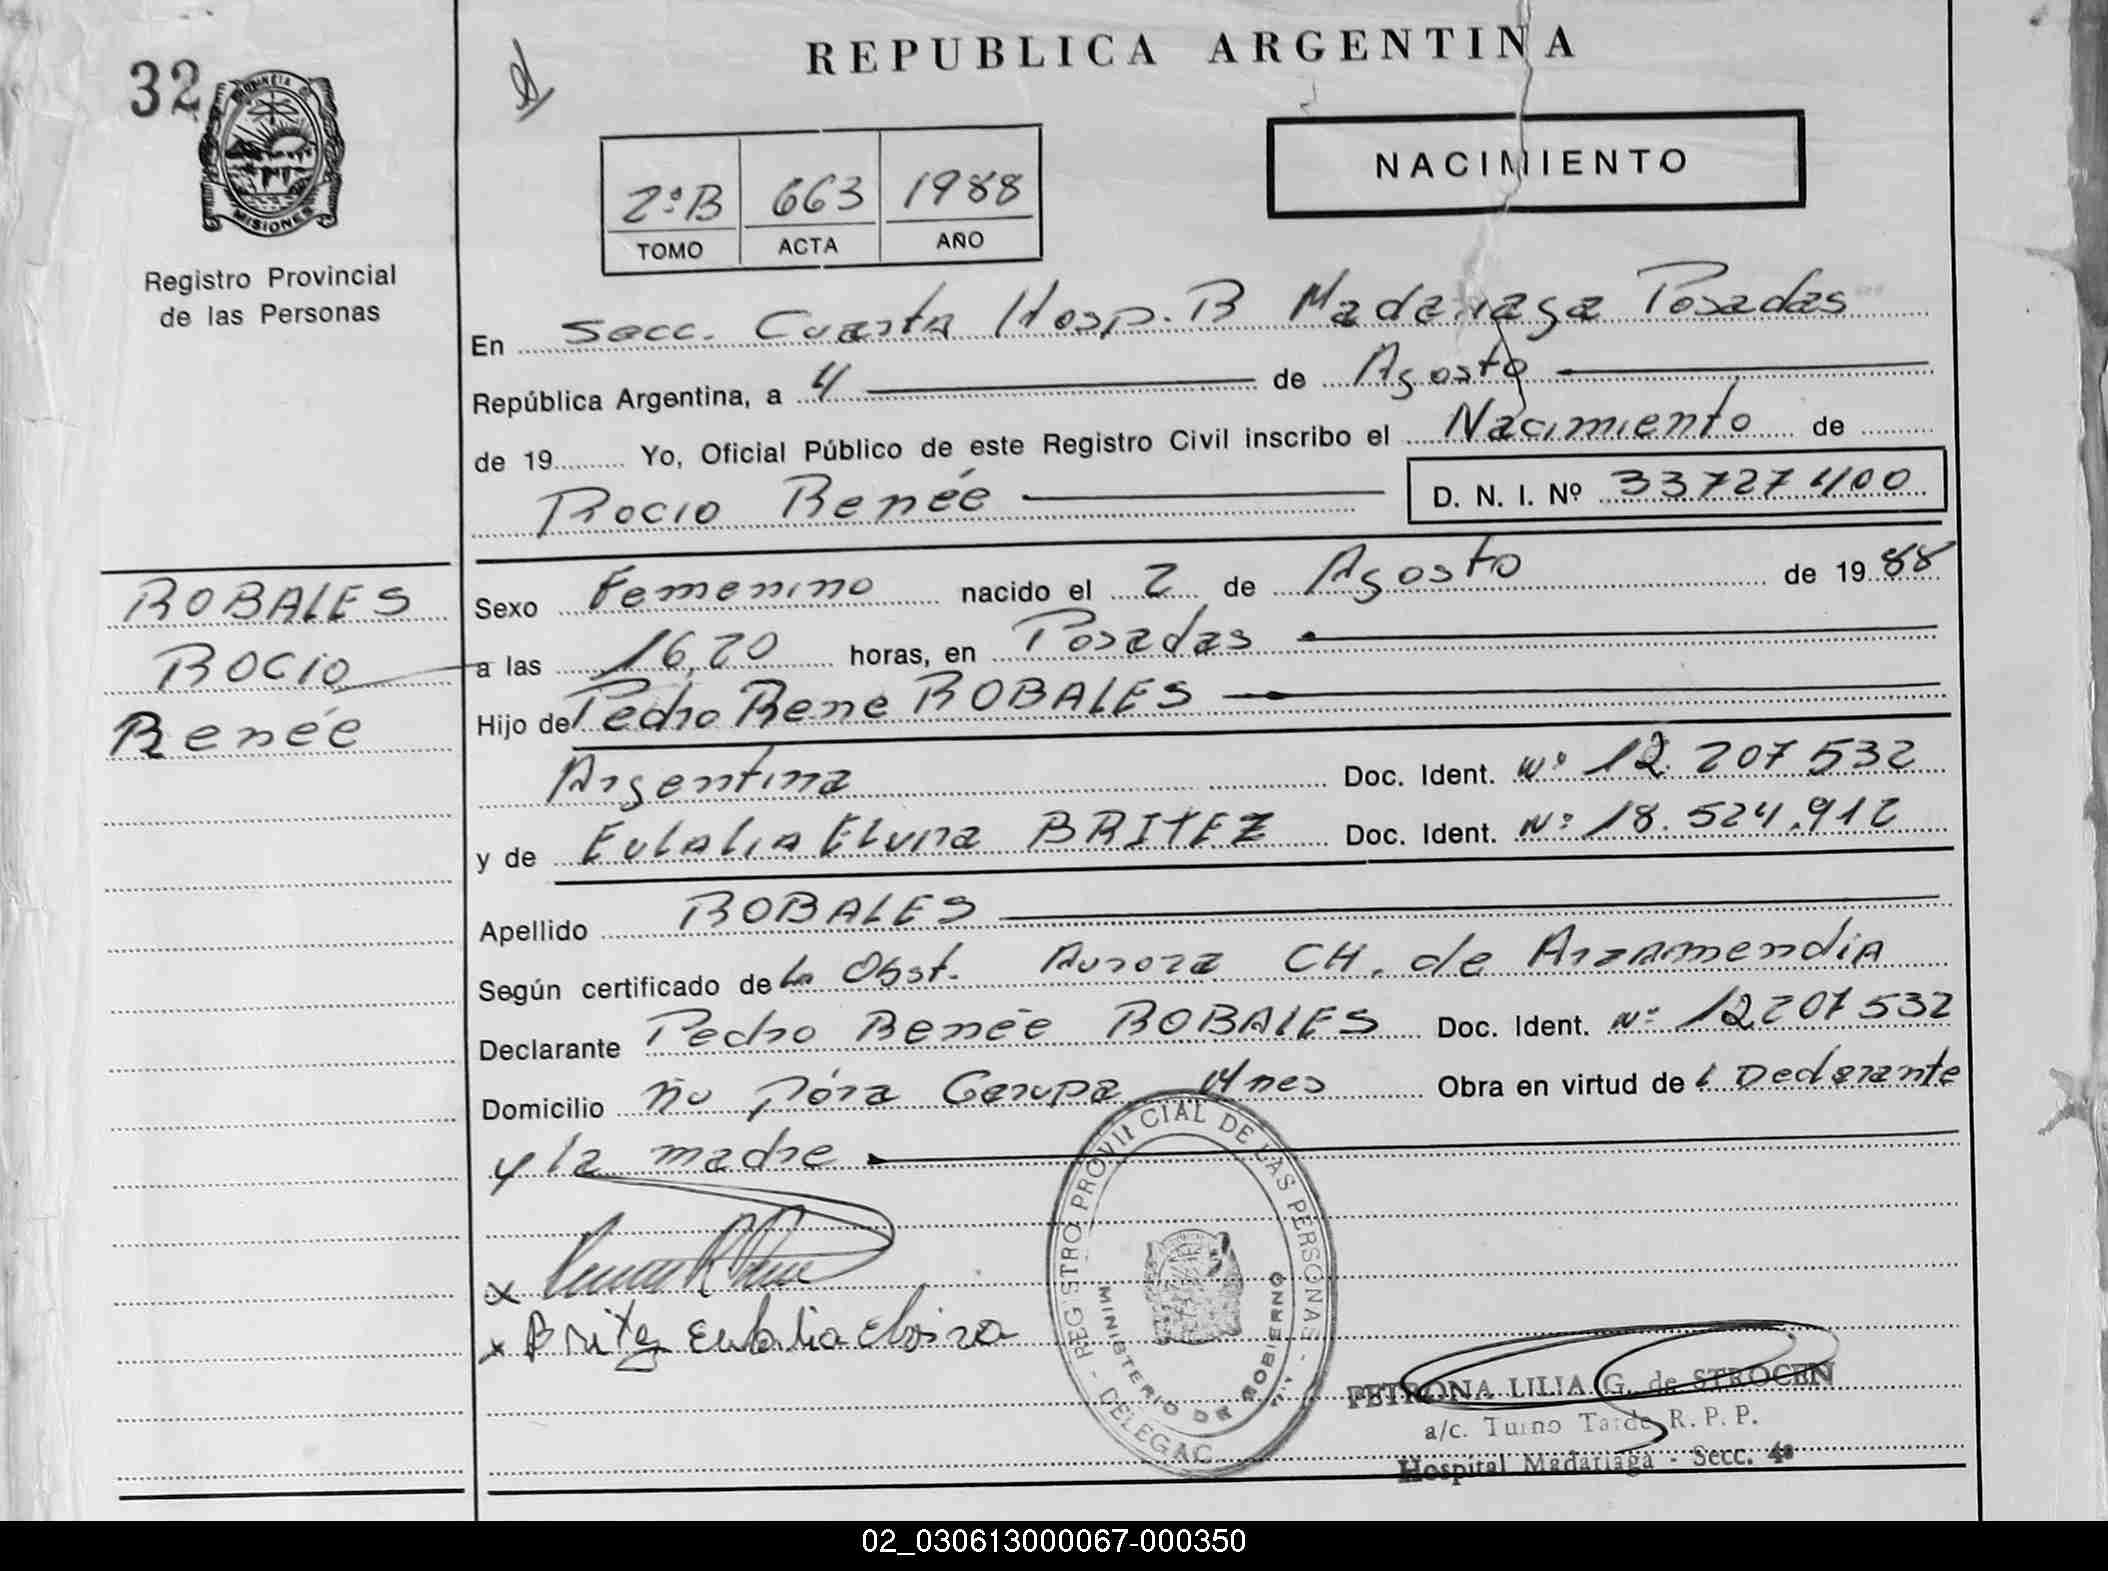 32
PROVINCIA DE
MISIONES
Registro Provincial
de las Personas
REPUBLICA ARGENTINA
2ºB 663 1988
TOMO ACTA AÑO
NACIMIENTO
En Secc. Cuarta Hosp. B Madariaga Posadas
República Argentina, a 4 de Agosto
de 19 Yo, Oficial Público de este Registro Civil inscribo el Nacimiento de
Rocio Renée D. N. I. Nº 33727400
ROBALES
Rocio
Renée
Sexo Femenino nacido el 2 de Agosto de 1988
a las 16,20 horas, en Posadas
Hijo de Pedro Rene ROBALES
Argentina Doc. Ident. Nº 12.207.532
y de Eulalia Elvira BRITEZ Doc. Ident. Nº 18.524.912
Apellido ROBALES
Según certificado de la Obst. Aurora CH. de Arzamendia
Declarante Pedro Renée ROBALES Doc. Ident. Nº 12207532
Domicilio Ñu Póra Garupa Mnes Obra en virtud de l Declarante
y la madre
x
x Britez Eulalia
REGISTRO PROVINCIAL DE LAS PERSONAS - DELEGAC.
MINISTERIO DE GOBIERNO
PETRONA LILIA G. de STROCEN
a/c. Turno Tarde R. P. P.
Hospital Madariaga - Secc. 4a
02_030613000067-000350